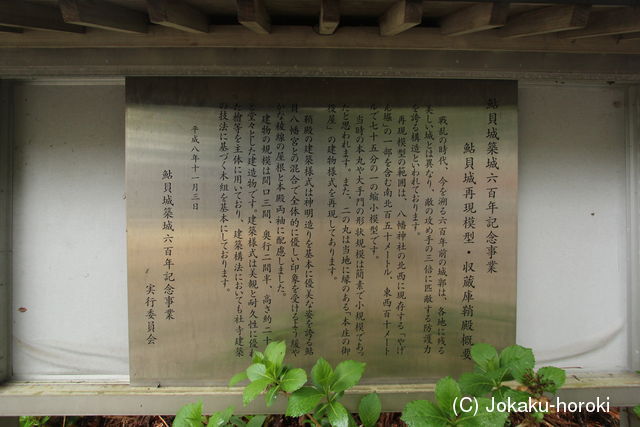 鮎貝城築城六百年記念事業
鮎貝城再現模型・収蔵庫鞘殿概要
戦乱の時代、今を溯る六百年前の城郭は、各地に残る
美しい城とは異なり、敵の攻め手の三倍に匹敵する防護力
を誇る構造といわれております。
再現模型の範囲は、八幡神社の北西に現存する「やげ
ん堀」の一部を含む南北百五十メートル、東西百十メート
ルで七十五分の一の縮小模型です。
当時の本丸や大手門の形状規模は簡素で小規模であっ
たと思われます。また、二の丸は当地に縁のある、本庄の御
役屋」の建物様式を再現してあります。
鞘殿の建築様式は神明造りを基本に優美な姿を誇る鮎
貝八幡宮との混合で全体的に優しい印象を受けるよう緩や
かな稜線の屋根と本殿両袖に配慮しました。
建物の規模は間口三間、奥行二間半、高さ約二十
を堂々とした建造物です。建築様式は美観と耐久性に優れ
た檜等を主体に用いており、建築構法においても社寺建築
の技法に基づく木組を基本にしております。
平成八年十一月三日
鮎貝城築城六百年記念事業
実行委員会
(C) Jokaku-horoki